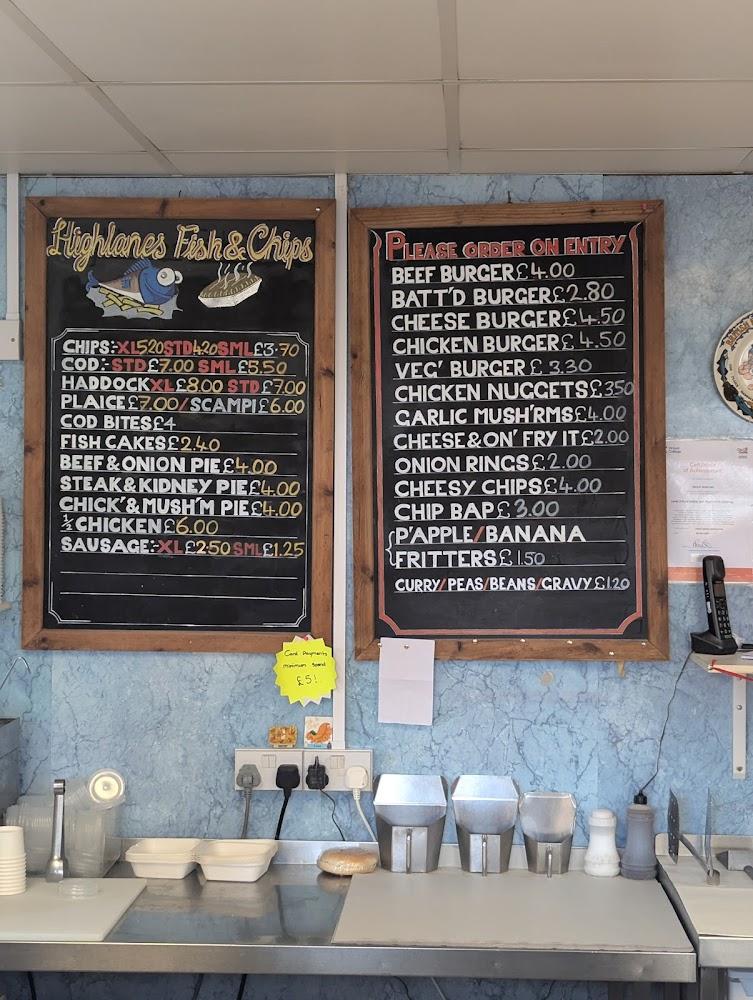 Highlanes Fish & Chips
CHIPS:- XL 520 STD 4.20 SML £3.70
COD:- STD £7.00 SML £5.50
HADDOCK XL £8.00 STD £7.00
PLAICE £7.00 / SCAMPI £6.00
COD BITES £4
FISH CAKES £2.40
BEEF & ONION PIE £4.00
STEAK & KIDNEY PIE £4.00
CHICK' & MUSH'M PIE £4.00
½ CHICKEN £6.00
SAUSAGE:- XL £2.50 SML £1.25
PLEASE ORDER ON ENTRY
BEEF BURGER £4.00
BATT'D BURGER £2.80
CHEESE BURGER £4.50
CHICKEN BURGER £4.50
VEG' BURGER £3.30
CHICKEN NUGGETS £3.50
GARLIC MUSH'RMS £4.00
CHEESE & ON' FRY IT £2.00
ONION RINGS £2.00
CHEESY CHIPS £4.00
CHIP BAP £3.00
P'APPLE/BANANA
FRITTERS £1.50
CURRY/PEAS/BEANS/GRAVY £1.20
Card Payments
minimum spend
£5!
Certificate
of Achievement